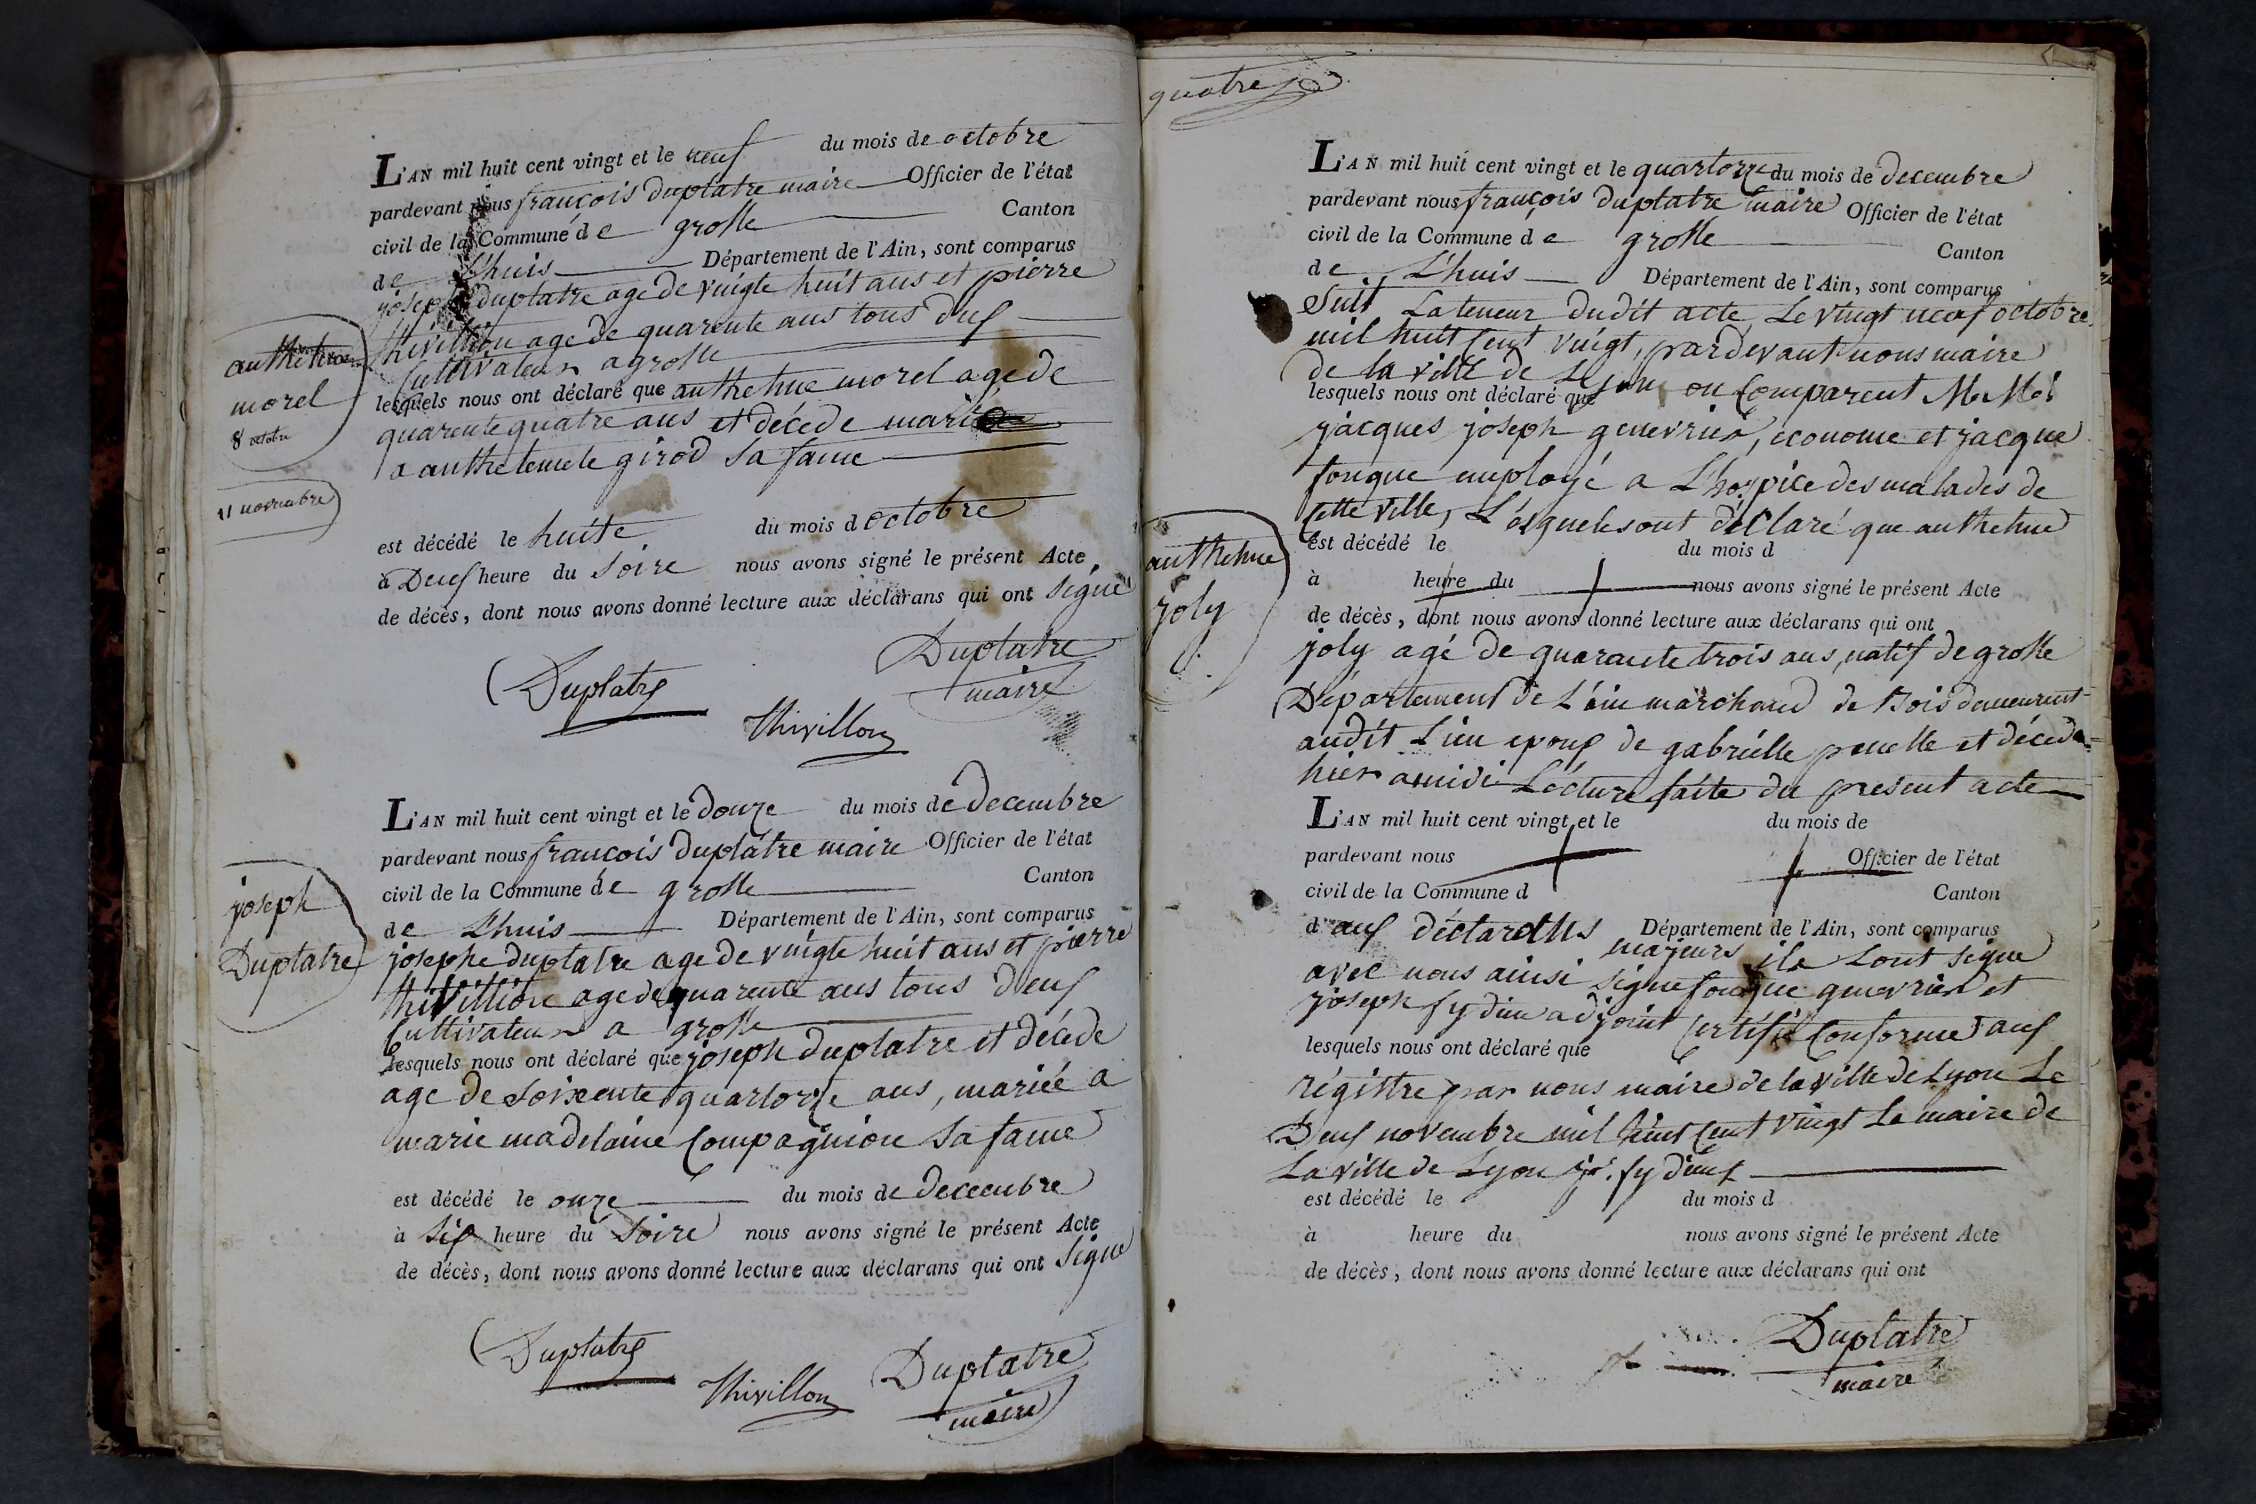 L'AN mil huit cent vingt et le neuf du mois de octobre
pardevant nous françois duplatre maire Officier de l'état
civil de la Commune de grosle Canton
de L'huis Département de l'Ain, sont comparus
joseph duplatre age de vingte huit ans et pierre
thivillion age de quarente ans tous dus
Cultivateur a grosle
lesquels nous ont déclaré que anthelme morel age de
quarente quatre ans et décéde marié
a anthelemele girod sa fame
est décédé le huite du mois d octobre
à Deus heure du soire nous avons signé le présent Acte
de décès, dont nous avons donné lecture aux déclarans qui ont signé
Duplatre
Duplatre
maire
thivillon
anthelme
morel
8 octobre
11 novembre
L'AN mil huit cent vingt et le douze du mois de decembre
pardevant nous françois duplatre maire Officier de l'état
civil de la Commune de grosle Canton
de L'huis Département de l'Ain, sont comparus
josephe duplatre age de vingte huit ans et pierre
thivillion age de quarente ans tous deus
Cultivateur a grosle
lesquels nous ont déclaré que joseph duplatre et décéde
age de soixente quartorze ans, mariée a
marie madelaine Compagnion sa fame
est décédé le onze du mois de decembre
à six heure du soire nous avons signé le présent Acte
de décès, dont nous avons donné lecture aux déclarans qui ont signé
Duplatre
Thivillon
Duplatre
maire
joseph
Duplatre
quatre
L'AN mil huit cent vingt et le quartorze du mois de decembre
pardevant nous françois duplatre maire Officier de l'état
civil de la Commune de grosle Canton
de L'huis Département de l'Ain, sont comparus
Suit La teneur dudit acte Le vingt neuf octobre
mil huit Cent vingt, pardevant nous maire
de la ville de Lyon on Comparent
lesquels nous ont déclaré que
jacques joseph genevrier, econome et jacque
fonque employé a L'hospice des malades de
Cette ville, Lesquels ont déclaré que anthelme
est décédé le du mois d
à heure du nous avons signé le présent Acte
de décès, dont nous avons donné lecture aux déclarans qui ont
joly agé de quarante trois ans, natif de grosle
Département de L'ain marchand de Bois demeurent
audit Lieu epous de gabrielle penelle et décéde
hier a midi Lécture faite du present acte
anthelme
joly
L'AN mil huit cent vingt et le du mois de
pardevant nous Officier de l'état
civil de la Commune d Canton
d aus déclarans Département de l'Ain, sont comparus
majeurs ils sont signe
avec nous ainsi signe fonque genevrier et
joseph fydieu adjoint Certifié Conforme aus
lesquels nous ont déclaré que
régistre par nous maire de la ville de Lyon Le
Deus novembre mil huit Cent vingt Le maire de
La ville de Lyon
est décédé le du mois d
à heure du nous avons signé le présent Acte
de décès, dont nous avons donné lecture aux déclarans qui ont
Duplatre
maire